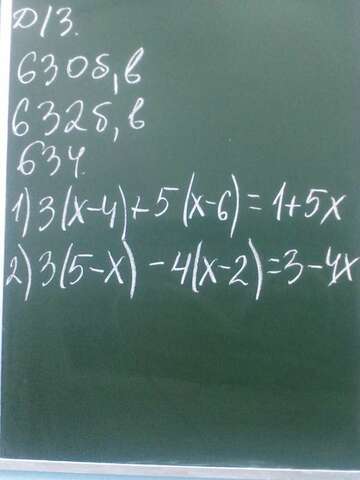 Д/З.
630б,в
632б,в
634.
1) 3(x-4)+5(x-6)=1+5x
2) 3(5-x)-4(x-2)=3-4x